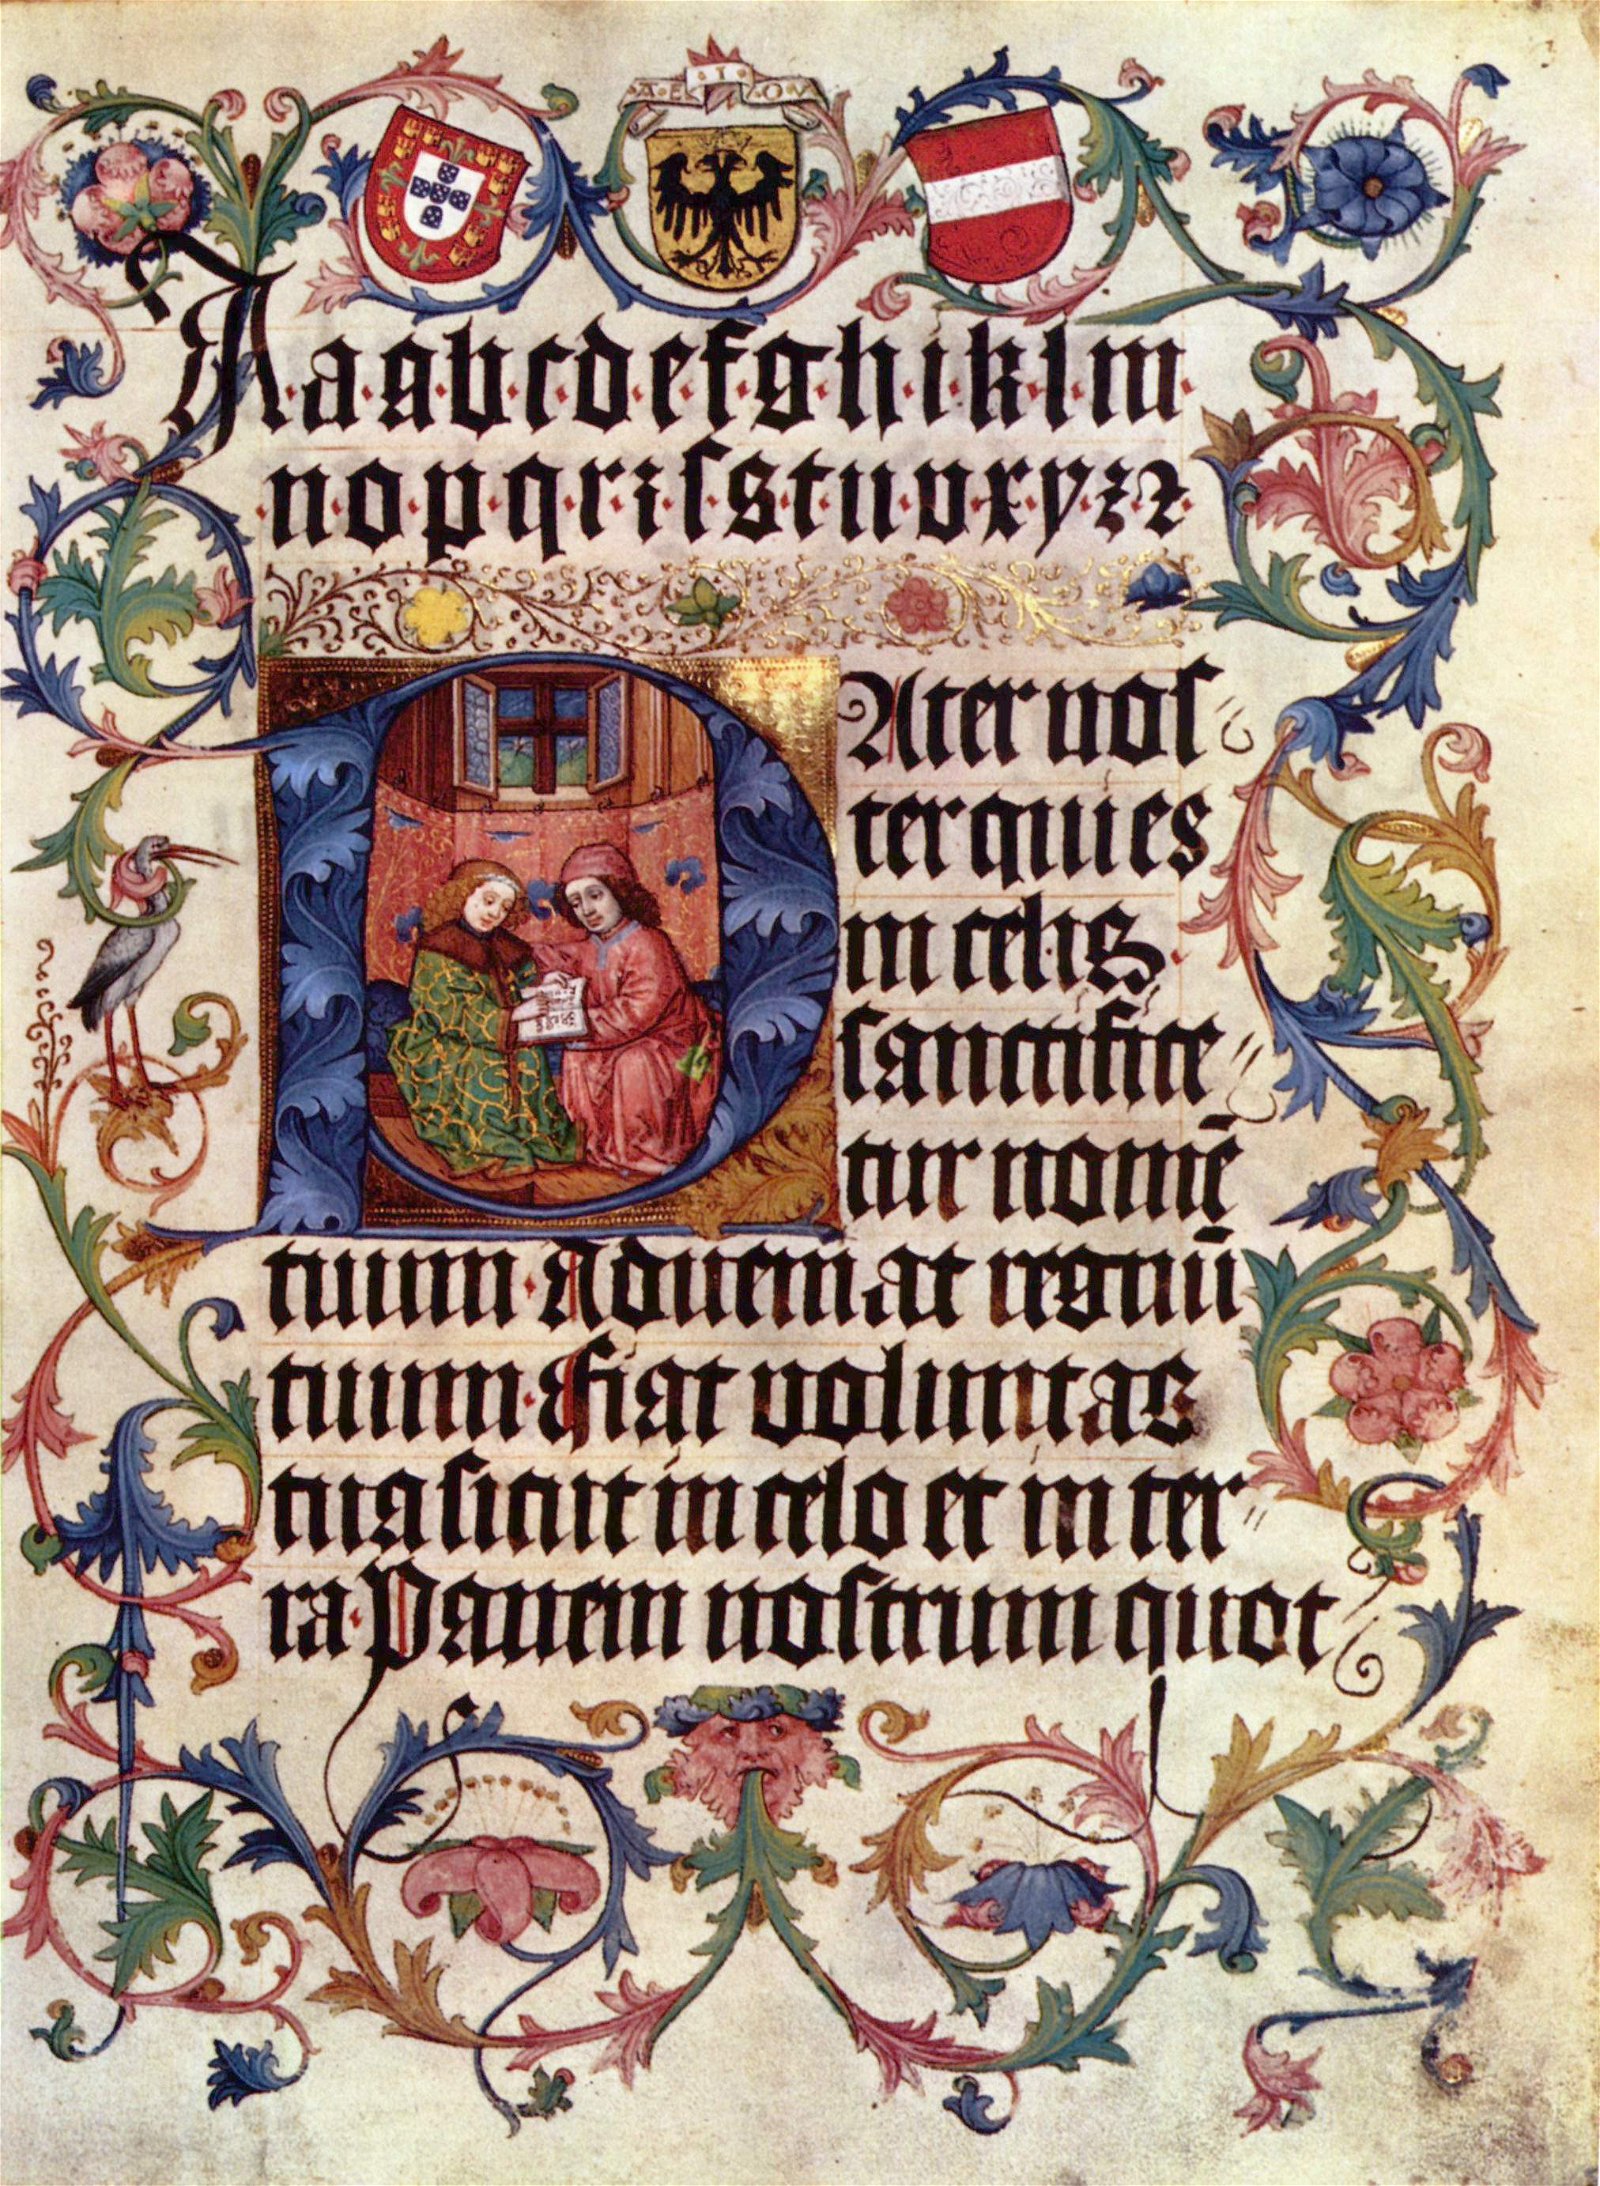 A·E·I·O·V
A·a·a·b·c·d·e·f·g·h·i·k·l·m·
·n·o·p·q·r·ꝛ·ſ·s·t·u·v·x·y·z·ꝛ
PAter noſ〃
ter qui es
in celis·
ſanctifice〃
tur nomē
tuum· Adueniat regnū
tuum· Fiat voluntas
tua ſicut in celo et in ter〃
ra· Panem noſtrum quot